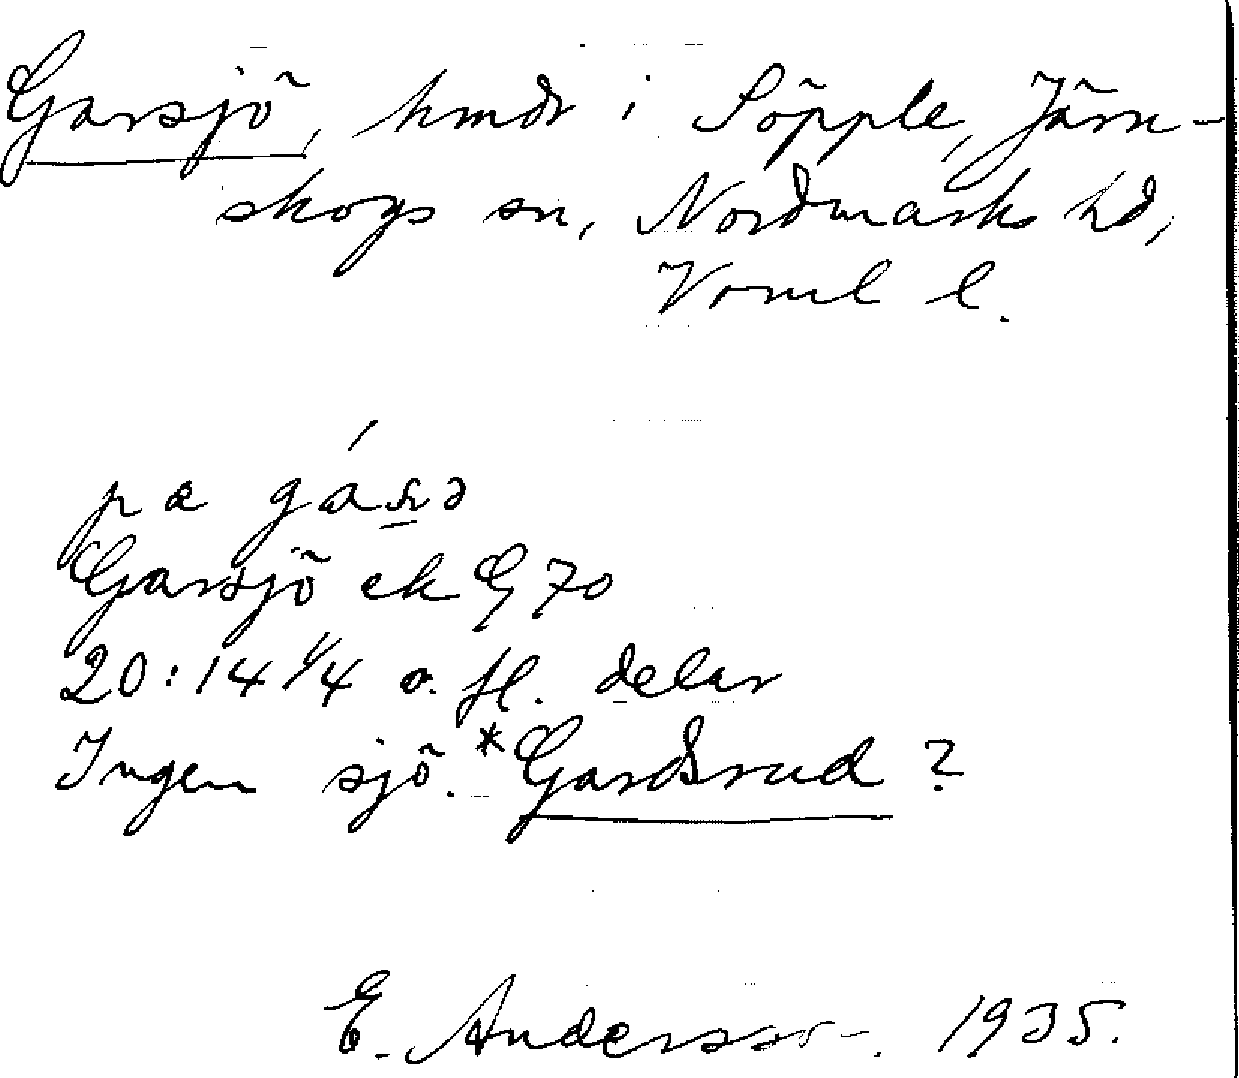 Garsjö, hmdr i Söpple, Järn-
skogs sn, Nordmarks hd,
Vrml l.
pa gáṣə
Garsjö ek G 70
20:14 1/4 o. fl. delar
Ingen sjö. *Gardsrud ?
E. Andersson. 1935.